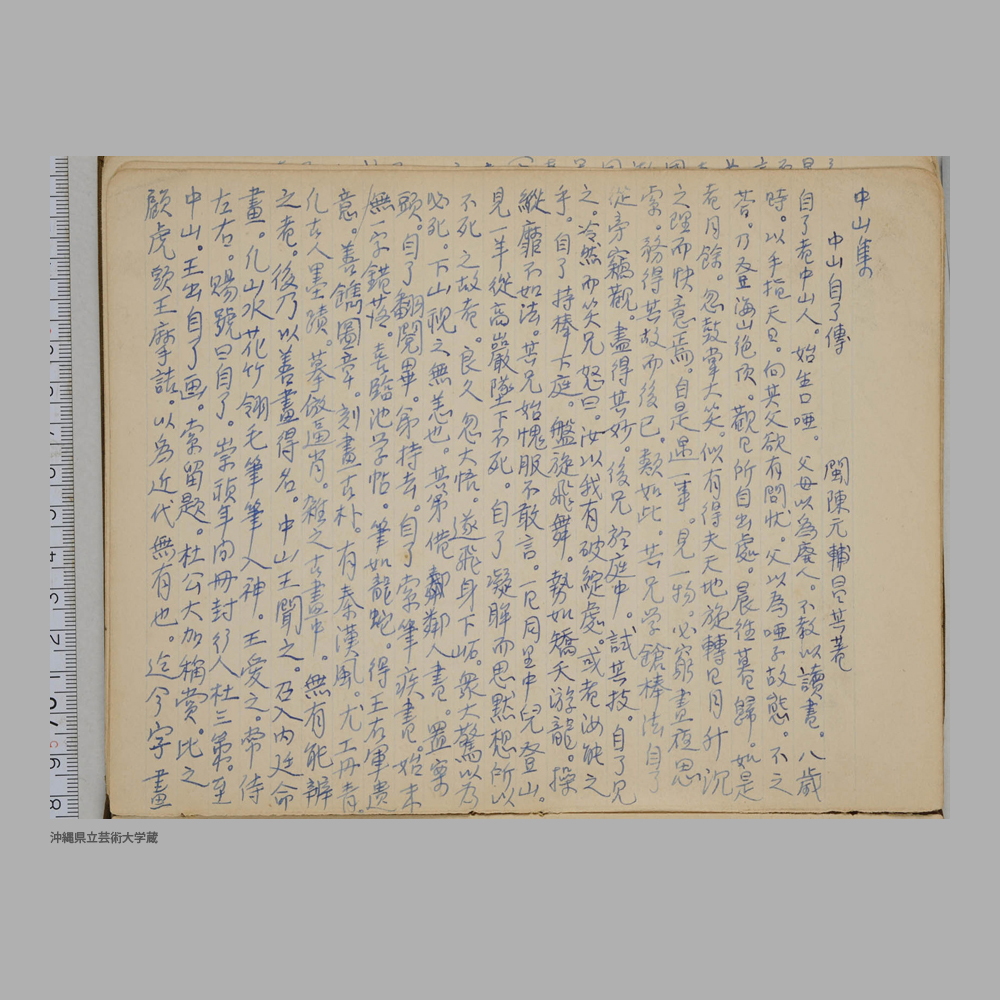 中山集
中山自了傳
閩陳元輔昌其著
自了者中山人。始生口啞。父母以為廢人。不敎以讀書。八歲
時。以手指天日。向其父欲有問狀。父以為啞子故態。不之
荅。乃登海山絶頂。觀日所自出處。晨往暮歸。如是
者月餘。忽鼓掌大笑。似有得夫天地旋轉日月升沉
之理而快意焉。自是遇一事。見一物。必窮晝夜思
索。務得其故而後已。類如此。其兄学鎗棒法自了
從旁竊觀。盡得其妙。後兄於庭中。試其技。自了見
之。冷然而笑兄怒曰。汝以我有破綻處。或者汝能之
手。自了持棒下庭。盤旋飛舞。勢如矯夭游龍。操
縱靡不如法。其兄始愧服不敢言。一日同里中兒登山。
見一羊從高巖墜下不死。自了凝眸而思默想所以
不死之故者。良久忽大悟。遂飛身下岥。衆大驚以为
必死。下山視之無恙也。其第借鄰人書。置案
頭。自了翻閲畢。弟持去。自了索筆疾書。始末
無一字錯落。喜臨池学帖。筆如龍蛇。得王右軍遺
意。善鐫圖章。刻畫古朴。有秦漢風。尤工丹青
凢古人墨蹟。摹倣逼肖。雜之古畫中。無有能辨
之者。後乃以善畫得名。中山王聞之。召入内廷命
畫。凢山水花竹翎毛筆筆入神。王愛之。常侍
左右。賜號曰自了。崇禎年间冊封行人杜三策。至
中山。王出自了画。索留題。杜公大加稱賞。比之
顧虎頭王摩詰。以為近代無有也。迄今字畫
沖縄県立芸術大学蔵